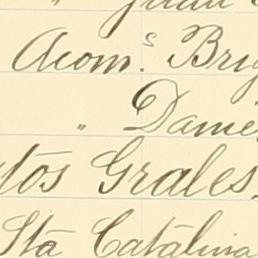 " Juan
Acom.s Brig
" Danie
tos Grales
Sta Catalina